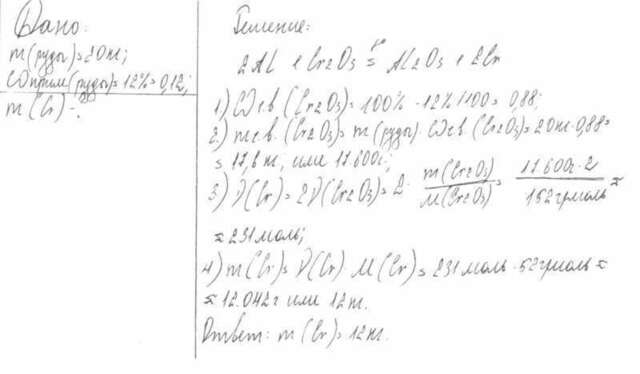 Дано:
m(руды)=20т;
ωприм(руды)=12%=0,12;
m(Cr)-?
Решение:
2Al + Cr2O3 = Al2O3 + 2Cr
1) ωчв (Cr2O3)=100% -12%/100= 0,88;
2) mчв. (Cr2O3)= m(руды)·ωчв.(Cr2O3)=20т·0,88=
= 17,6т, или 17.600г;
3) ν(Cr)= 2ν(Cr2O3)= 2· m(Cr2O3)/M(Cr2O3) = 17.600г·2/152г/моль ≈
≈ 231моль;
4) m(Cr)= ν(Cr)·M(Cr)= 231моль·52г/моль ≈
≈ 12.042г или 12т.
Ответ: m(Cr)=12т.